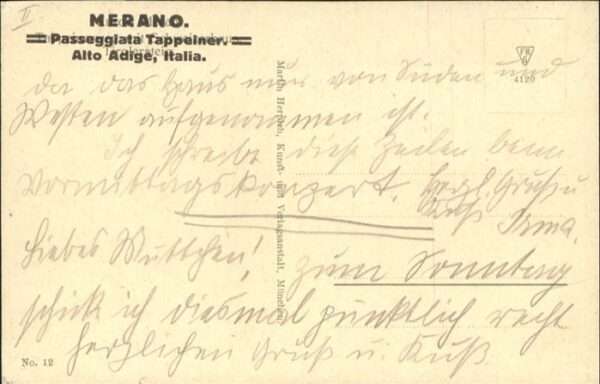 II
MERANO.
Passeggiata Tappeiner.
Alto Adige, Italia.
4120
da das Haus nur von Süden und
Westen aufgenommen ist.
Ich schreibe diese Zeilen beim
Vormittagskonzert. Herzl. Gruß u
Kuß Irma.
Liebes Muttchen!
Zum Sonntag
schick ich diesmal pünktlich recht
herzlichen Gruß u. Kuß
Martin Herpich, Kunst- und Verlagsanstalt, München
No. 12